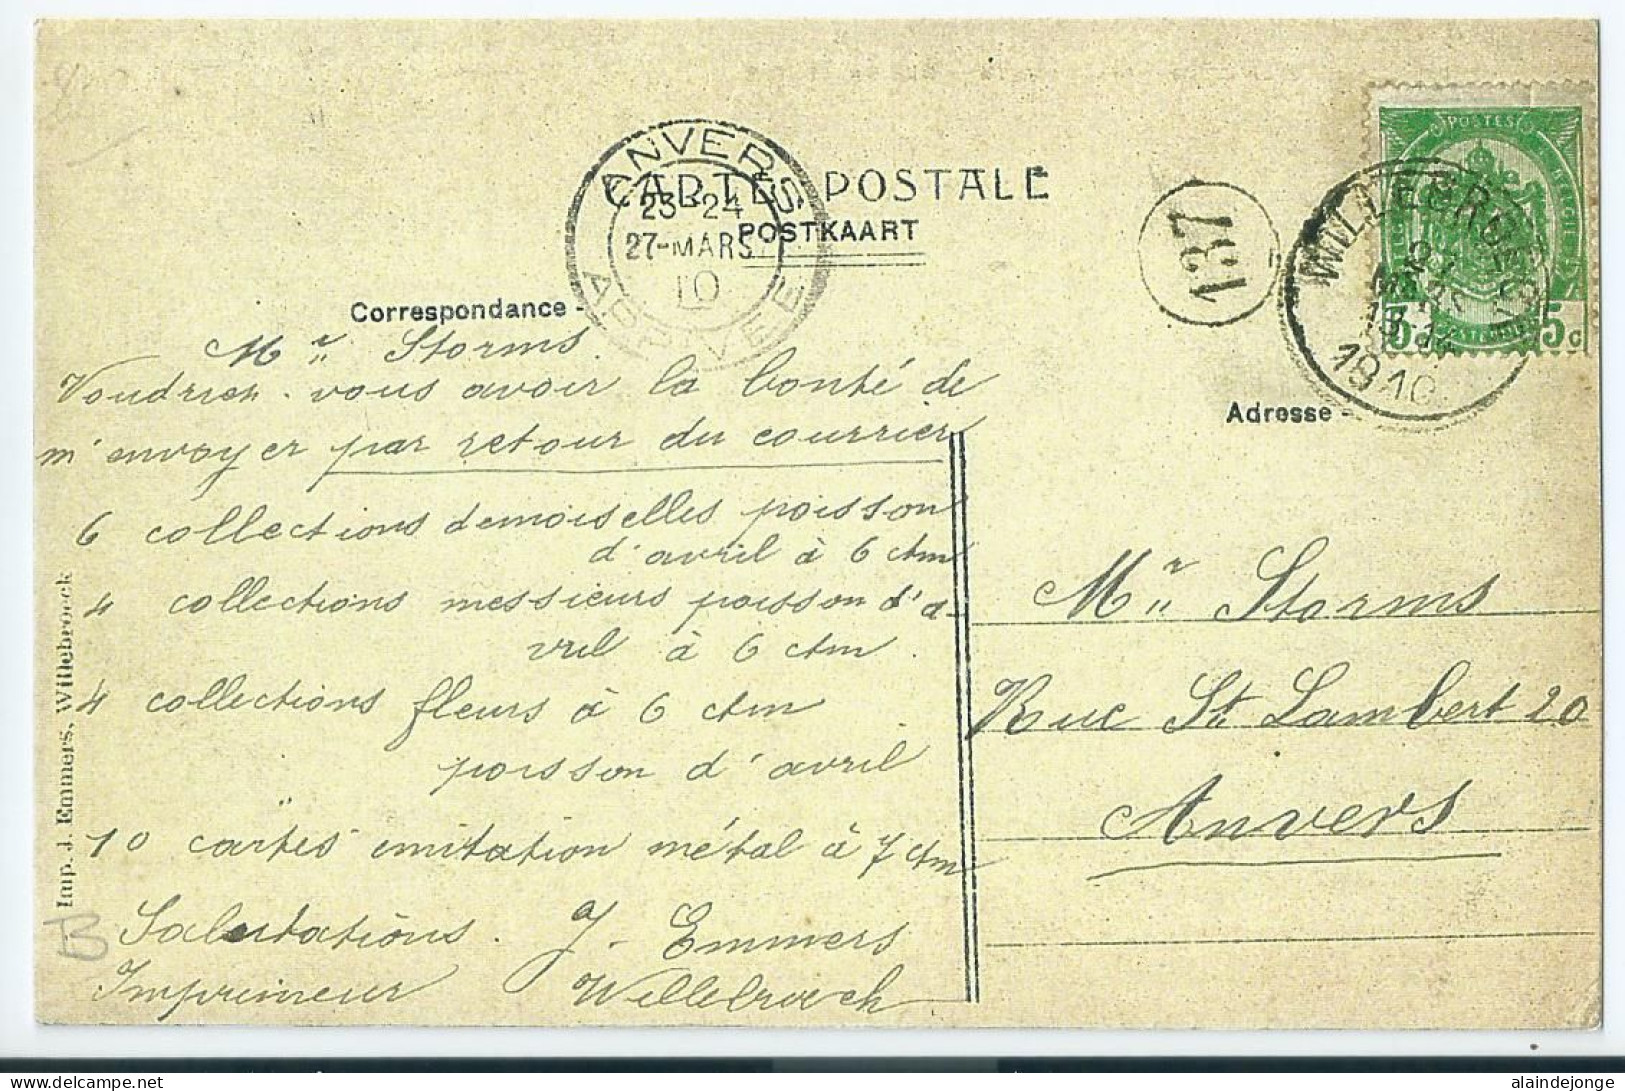 CARTE POSTALE
POSTKAART
ANVERS
23-24
27-MARS
10
ARRIVÉE
137
POSTES
5c 5c
WILLEBROECK
MARS
1910
Correspondance -
Adresse -
Mr Storms.
Voudriez-vous avoir la bonté de
m'envoyer par retour du courrier
6 collections demoiselles poisson
d'avril à 6 ctm
4 collections messieurs poisson d'a-
vril à 6 ctm.
4 collections fleurs à 6 ctm
poisson d'avril
10 cartes imitation métal à 7 ctm
Salutations. J. Emmers
Imprimeur Willebroeck
Mr Storms
Rue St Lambert 20
Anvers
Imp. J. Emmers, Willebroeck
B
alaindejonge